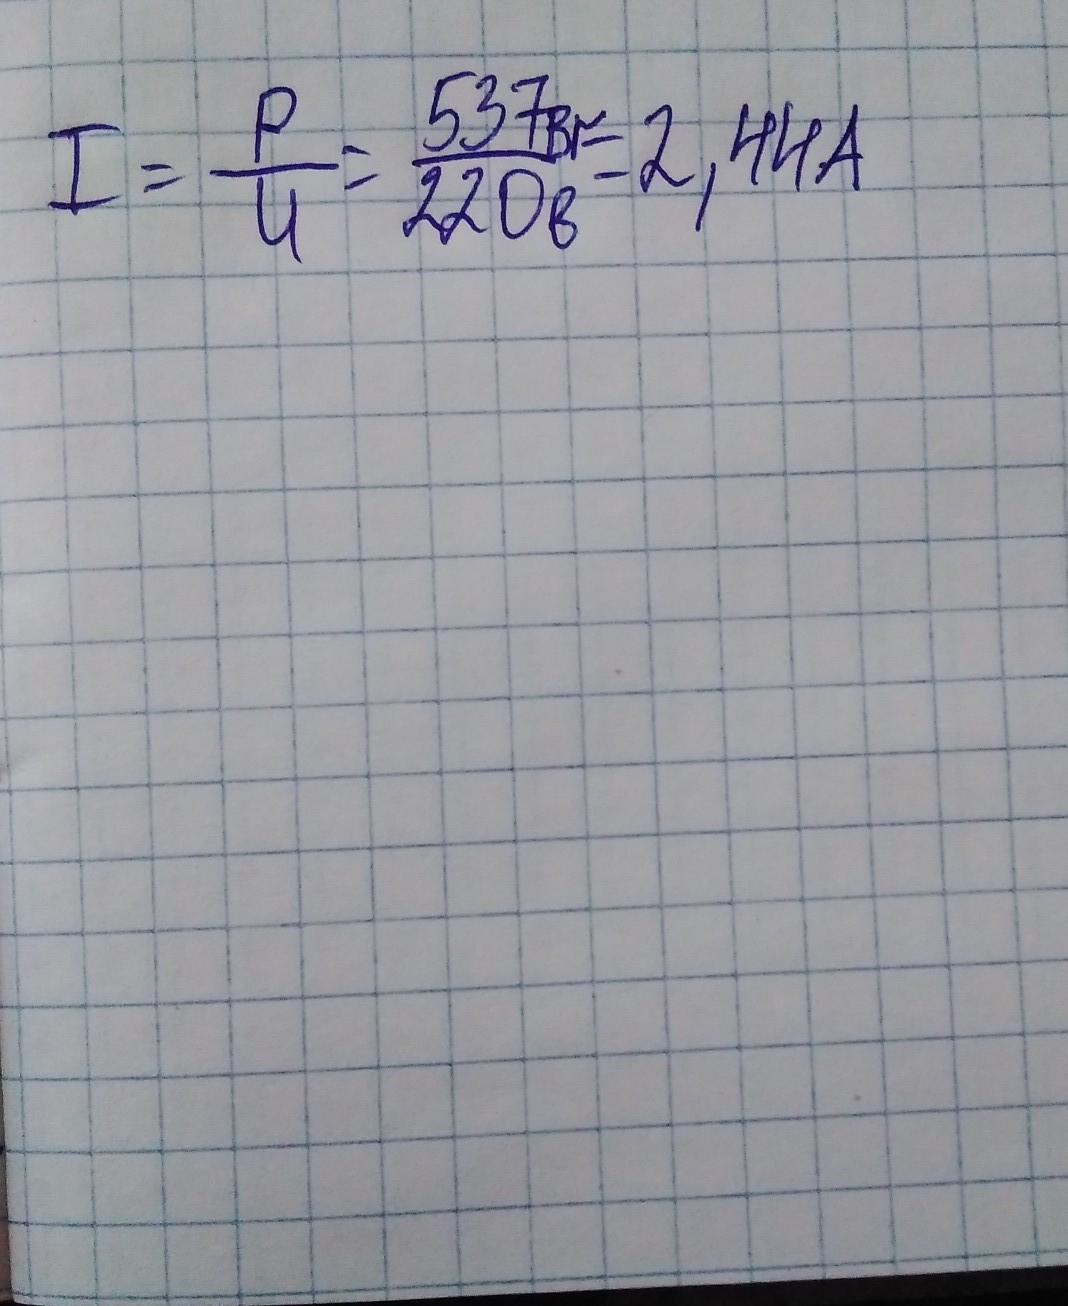 I = P/U = 537Вт/220В = 2,44А